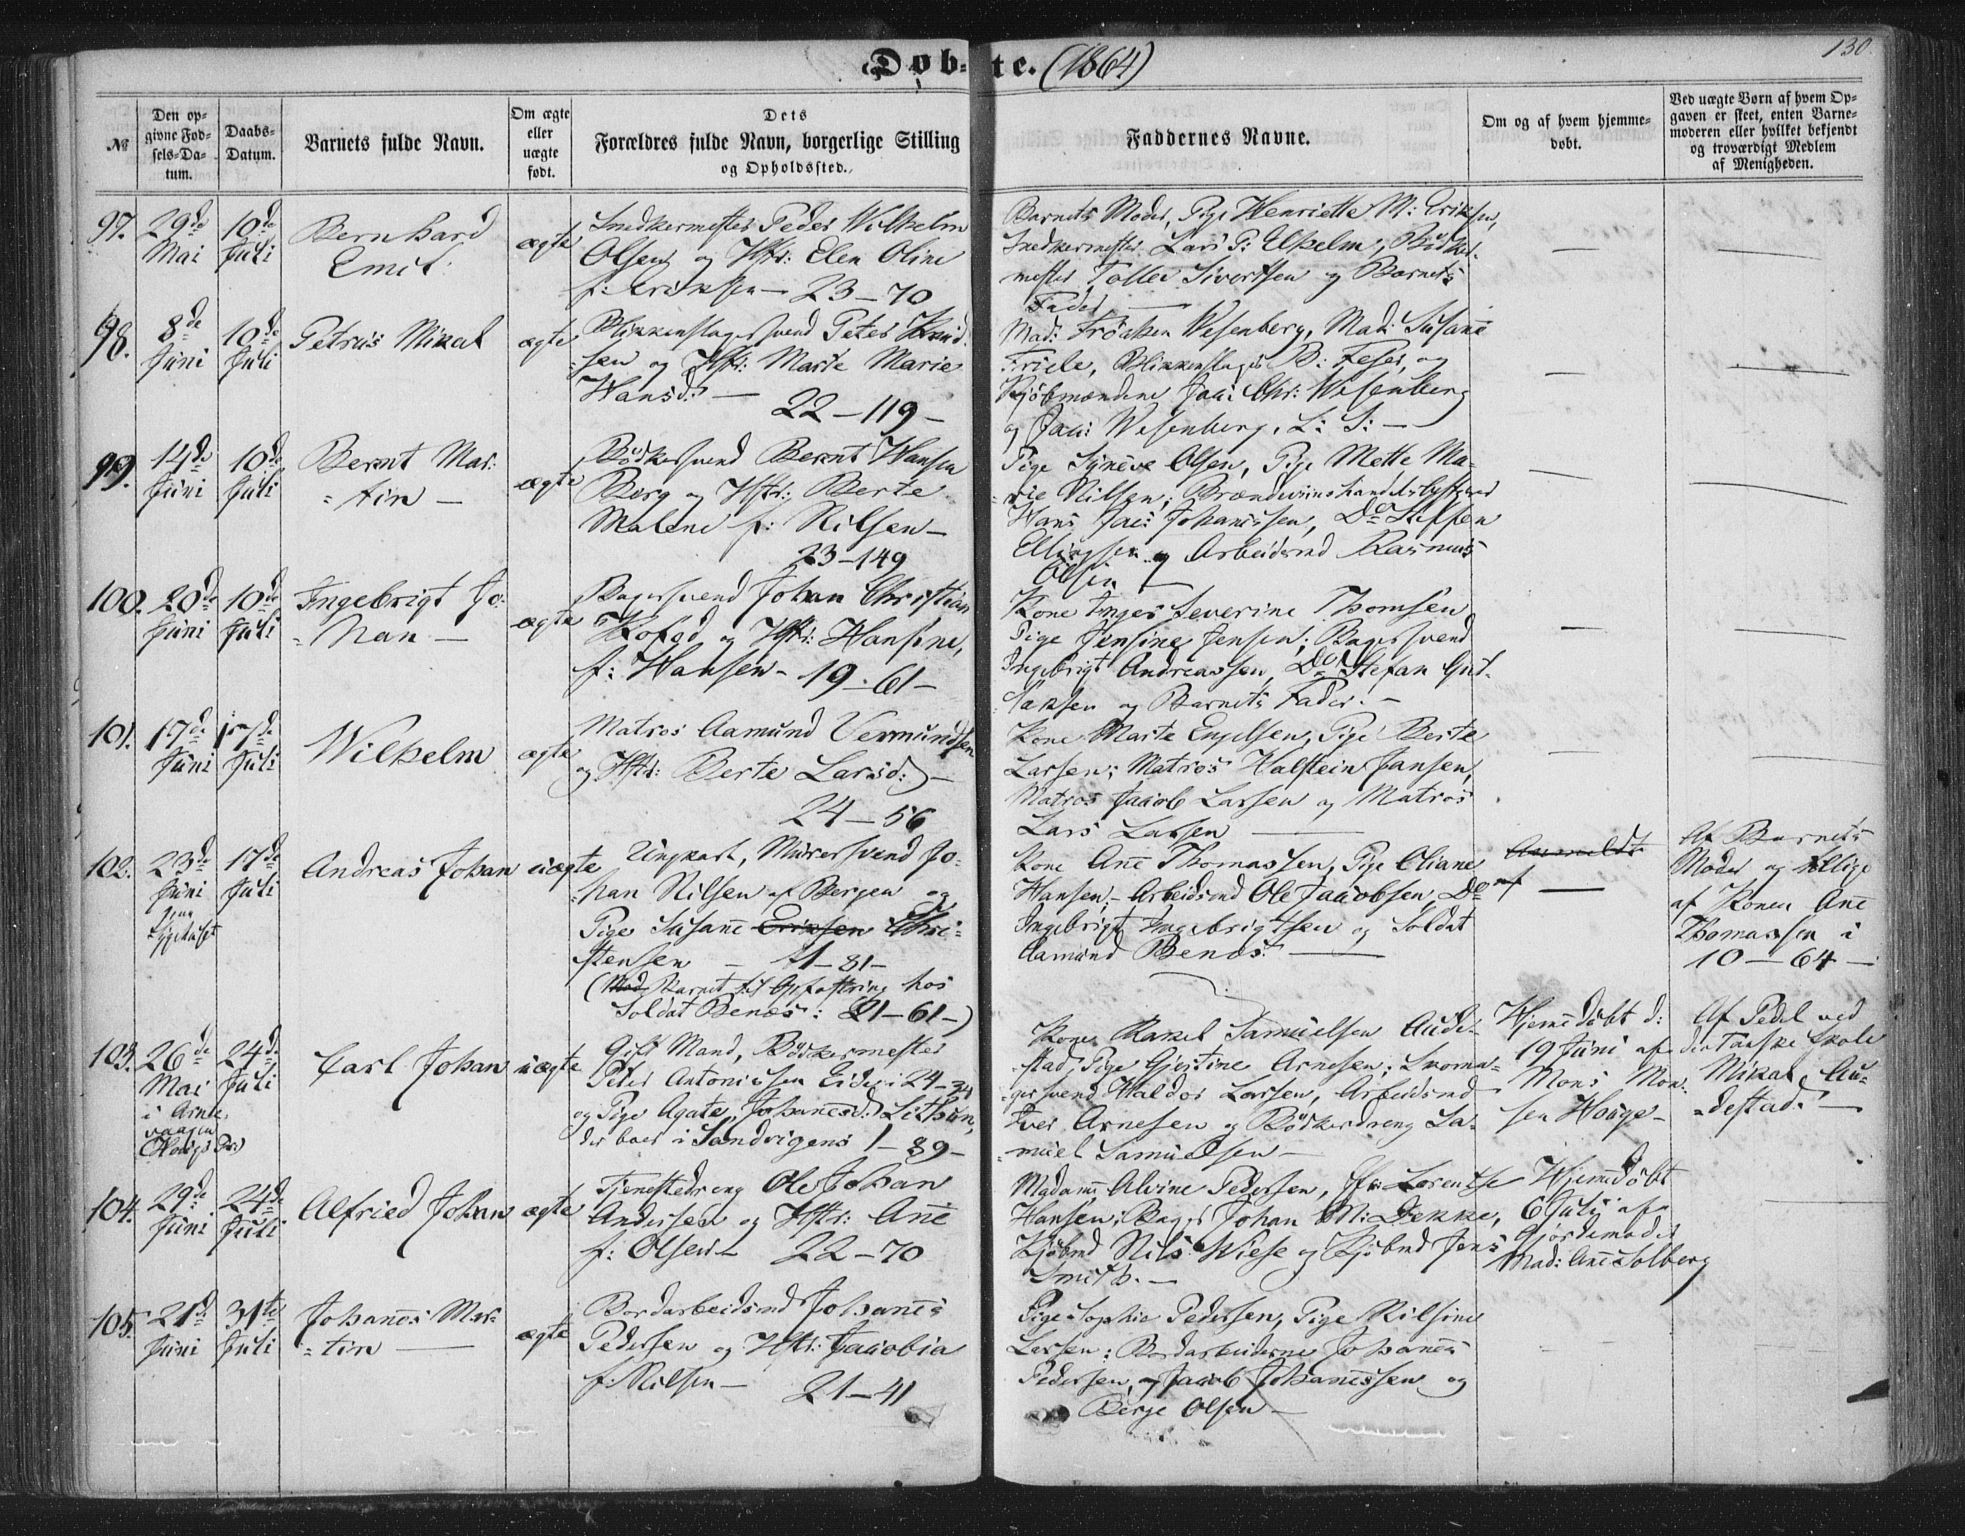 Døb-te. (1864)
130.
№
Den op-
givne Fød-
sels-Da-
tum.
Daabs-
Datum.
Barnets fulde Navn.
Om ægte
eller
uægte
født.
Dets
Forældres fulde Navn, borgerlige Stilling
og Opholdssted.
Faddernes Navne.
Om og af hvem hjemme-
døbt.
Ved uægte Børn af hvem Op-
gaven er skeet, enten Barne-
moderen eller hvilket bekjendt
og troværdigt Medlem
af Menigheden.
97.
29de
Mai
10de
Juli
Bernhard
Emil
ægte
Snedkermester Peder Wilhelm
Olsen og Hstr: Elen Oline
f: Eriksen — 23—70
Barnets Moder, Pige Henriette M: Eriksen,
Snedkermester Lars P: Ekelm, Bødker-
mester Tollev Sivertsen og Barnets
Fader —
98.
8de
Juni
10de
Juli
Petrus Mikal
ægte
Blikkenslagersvend Peter Knud-
sen og Hstr: Marte Marie
Hansd: —
22—119—
Mad: Frøchen Wesenberg, Mad: Susanne
Friele, Blikkenslager B: Feser, og
Kjøbmændene Jac: Chr: Wesenberg
og Jac: Wesenberg, L: S: —
99.
14de
Juni
10de
Juli
Bernt Mar-
tin —
ægte
Bødkersvend Bernt Hansen
Berg og Hstr: Berte
Malene f: Nilsen —
23—149
Pige Synève Olsen, Pige Mette Ma-
rie Nilsen; Brændeviinshandelsbestyrer
Hans Jac: Johannssen, Do Steffen
Ellingsen og Arbeidsmd Rasmus
Olsen —
100.
20de
Juni
10de
Juli
Ingebrigt Jo-
han —
ægte
Bagersvend Johan Christian
Kofod og Hstr: Hansine,
f: Hansen — 19—61—
Kone Inger Severine Thomsen
Pige Jensine Jensen; Bagersvend
Ingebrigt Andreassen, Do Stefan Gut-
laksen og Barnets Fader. —
101.
17de
Juni
17de
Juli
Wilhelm
ægte
Matros Aamund Vermundsen
og Hstr: Berte Larsd: —
24—56
Kone Marte Engelsen, Pige Berte
Larsen; Matros Halstein Jansen,
Matros Jacob Larsen og Matros
Lars Larsen —
102.
23de
Juni
17de
Juli
Andreas Johan
uægte
Ungkarl, Murersvend Jo-
han Nilsen af Bergen og
Pige Susanne Eriksen Chri-
stensen — 1—81—
(Mod Barnet til Opfostring hos
Soldat Benes: 21—61—)
Kone Anne Thomassen, Pige Oliane
Hansen; Arbeidsmd Ole Jacobsen, Do
Ingebrigt Ingebrigtsen og Soldat
Aamund Benes: —
Anmeldt
af —
Af Barnets
Moder og tillige
af Konen Ane
Thomassen i
10—64—
103.
26de
Mai
i Arne
vaagen
(Hougs Pr:)
24de
Juli
Carl Johan
uægte
Gift Mand, Bødkermester
Peter Antoniussen Eide i 24—34
og Pige Agate Johannesd:
der boer i Sandvigens 1—89—
Kone Rakel Samuelsen Aude-
stad, Pige Gjertine Arnesen; Skoma-
gersvend Haldor Larsen, Arbeidsmd
Iver Arnesen og Bødkerdreng Sa-
muel Samuelsen —
Hjemmedøbt d:
19 Juni af
Mons Mon-
sen Houge—
Af Pedel ved
den Tanske Skole
Mikal Au-
destad. —
104.
29de
Juni
24de
Juli
Alfried Johan
ægte
Tjenestedreng Ole Johan
Andersen og Hstr: Anne
f: Olsen — 22—70
Madam Alvine Pedersen, Lorentse
Hansen; Bager Johan M: Dekke,
Kjøbmd Nils Wiese og Kjøbmd Jens
Smith. —
Hjemmedøbt
6 Juli af
Gjordemoder
Mad: Ane Solberg
105.
21de
Juni
31te
Juli
Johannes Mar-
tin —
ægte
Bordarbeidsmd Johannes
Pedersen og Hstr: Jacobia
f: Nilsen — 21—41
Pige Sophie Pedersen, Pige Nilsine
Larsen; Bordarbeiderne Johannes
Pedersen, og Jacob Johannessen og
Berge Olsen —